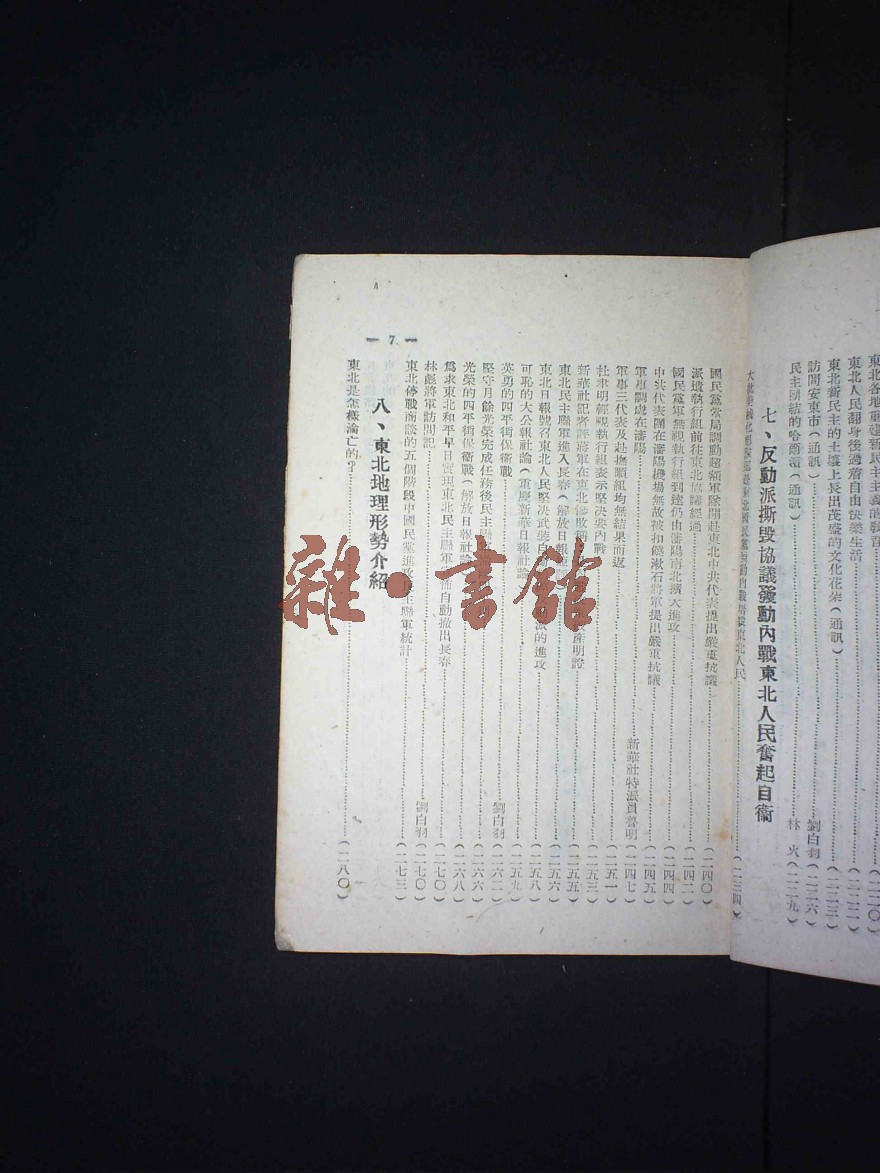 東北各地重建新民主主義的教育……(二二〇)
東北人民翻身後過着自由快樂生活……(二二二)
東北新民主的土壤上長出茂盛的文化花朶(通訊)……(二二三)
訪問安東市(通訊)……劉白羽(二二六)
民主團結的哈爾濱(通訊)……林火(二二九)
七、反動派撕毀協議發動內戰東北人民奮起自衞
內戰屠殺東北人民……(二三四)
國民黨當局調動超額軍隊開赴東北中共代表提出嚴重抗議……(二四〇)
派遣執行組前往東北協議經過……(二四二)
國民黨軍無視執行組到達仍由瀋陽南北擴大進攻……(二四四)
中共代表團在瀋陽機場無故被扣饒漱石將軍提出嚴重抗議……(二四五)
軍事調處在瀋陽……新華社特派員魯明(二四七)
軍事三代表及赴撫順組均無結果而返……(二五一)
杜聿明輕視執行組表示堅決要內戰……(二五三)
新華社記者評蔣軍在東北慘敗 明證……(二五五)
東北民主聯軍進入長春(解放日報 ……(二五七)
東北日報號召東北人民堅決武裝自 派的進攻……(二五八)
可恥的大公報社論(重慶新華日報社論)……(二五九)
英勇的四平街保衞戰……劉白羽(二六二)
堅守月餘光榮完成任務後民主聯 ……(二六六)
光榮的四平街保衞戰(解放日報社論)……(二六八)
爲求東北和平早日實現東北民主聯軍 自動撤出長春……(二七〇)
林彪將軍訪問記……劉白羽(二七〇)
東北停戰商談的五個階段中國民黨進攻民主聯軍統計……(二七三)
八、東北地理形勢介紹
東北是怎樣淪亡的?……(二八〇)
— 7 —
雜·書館